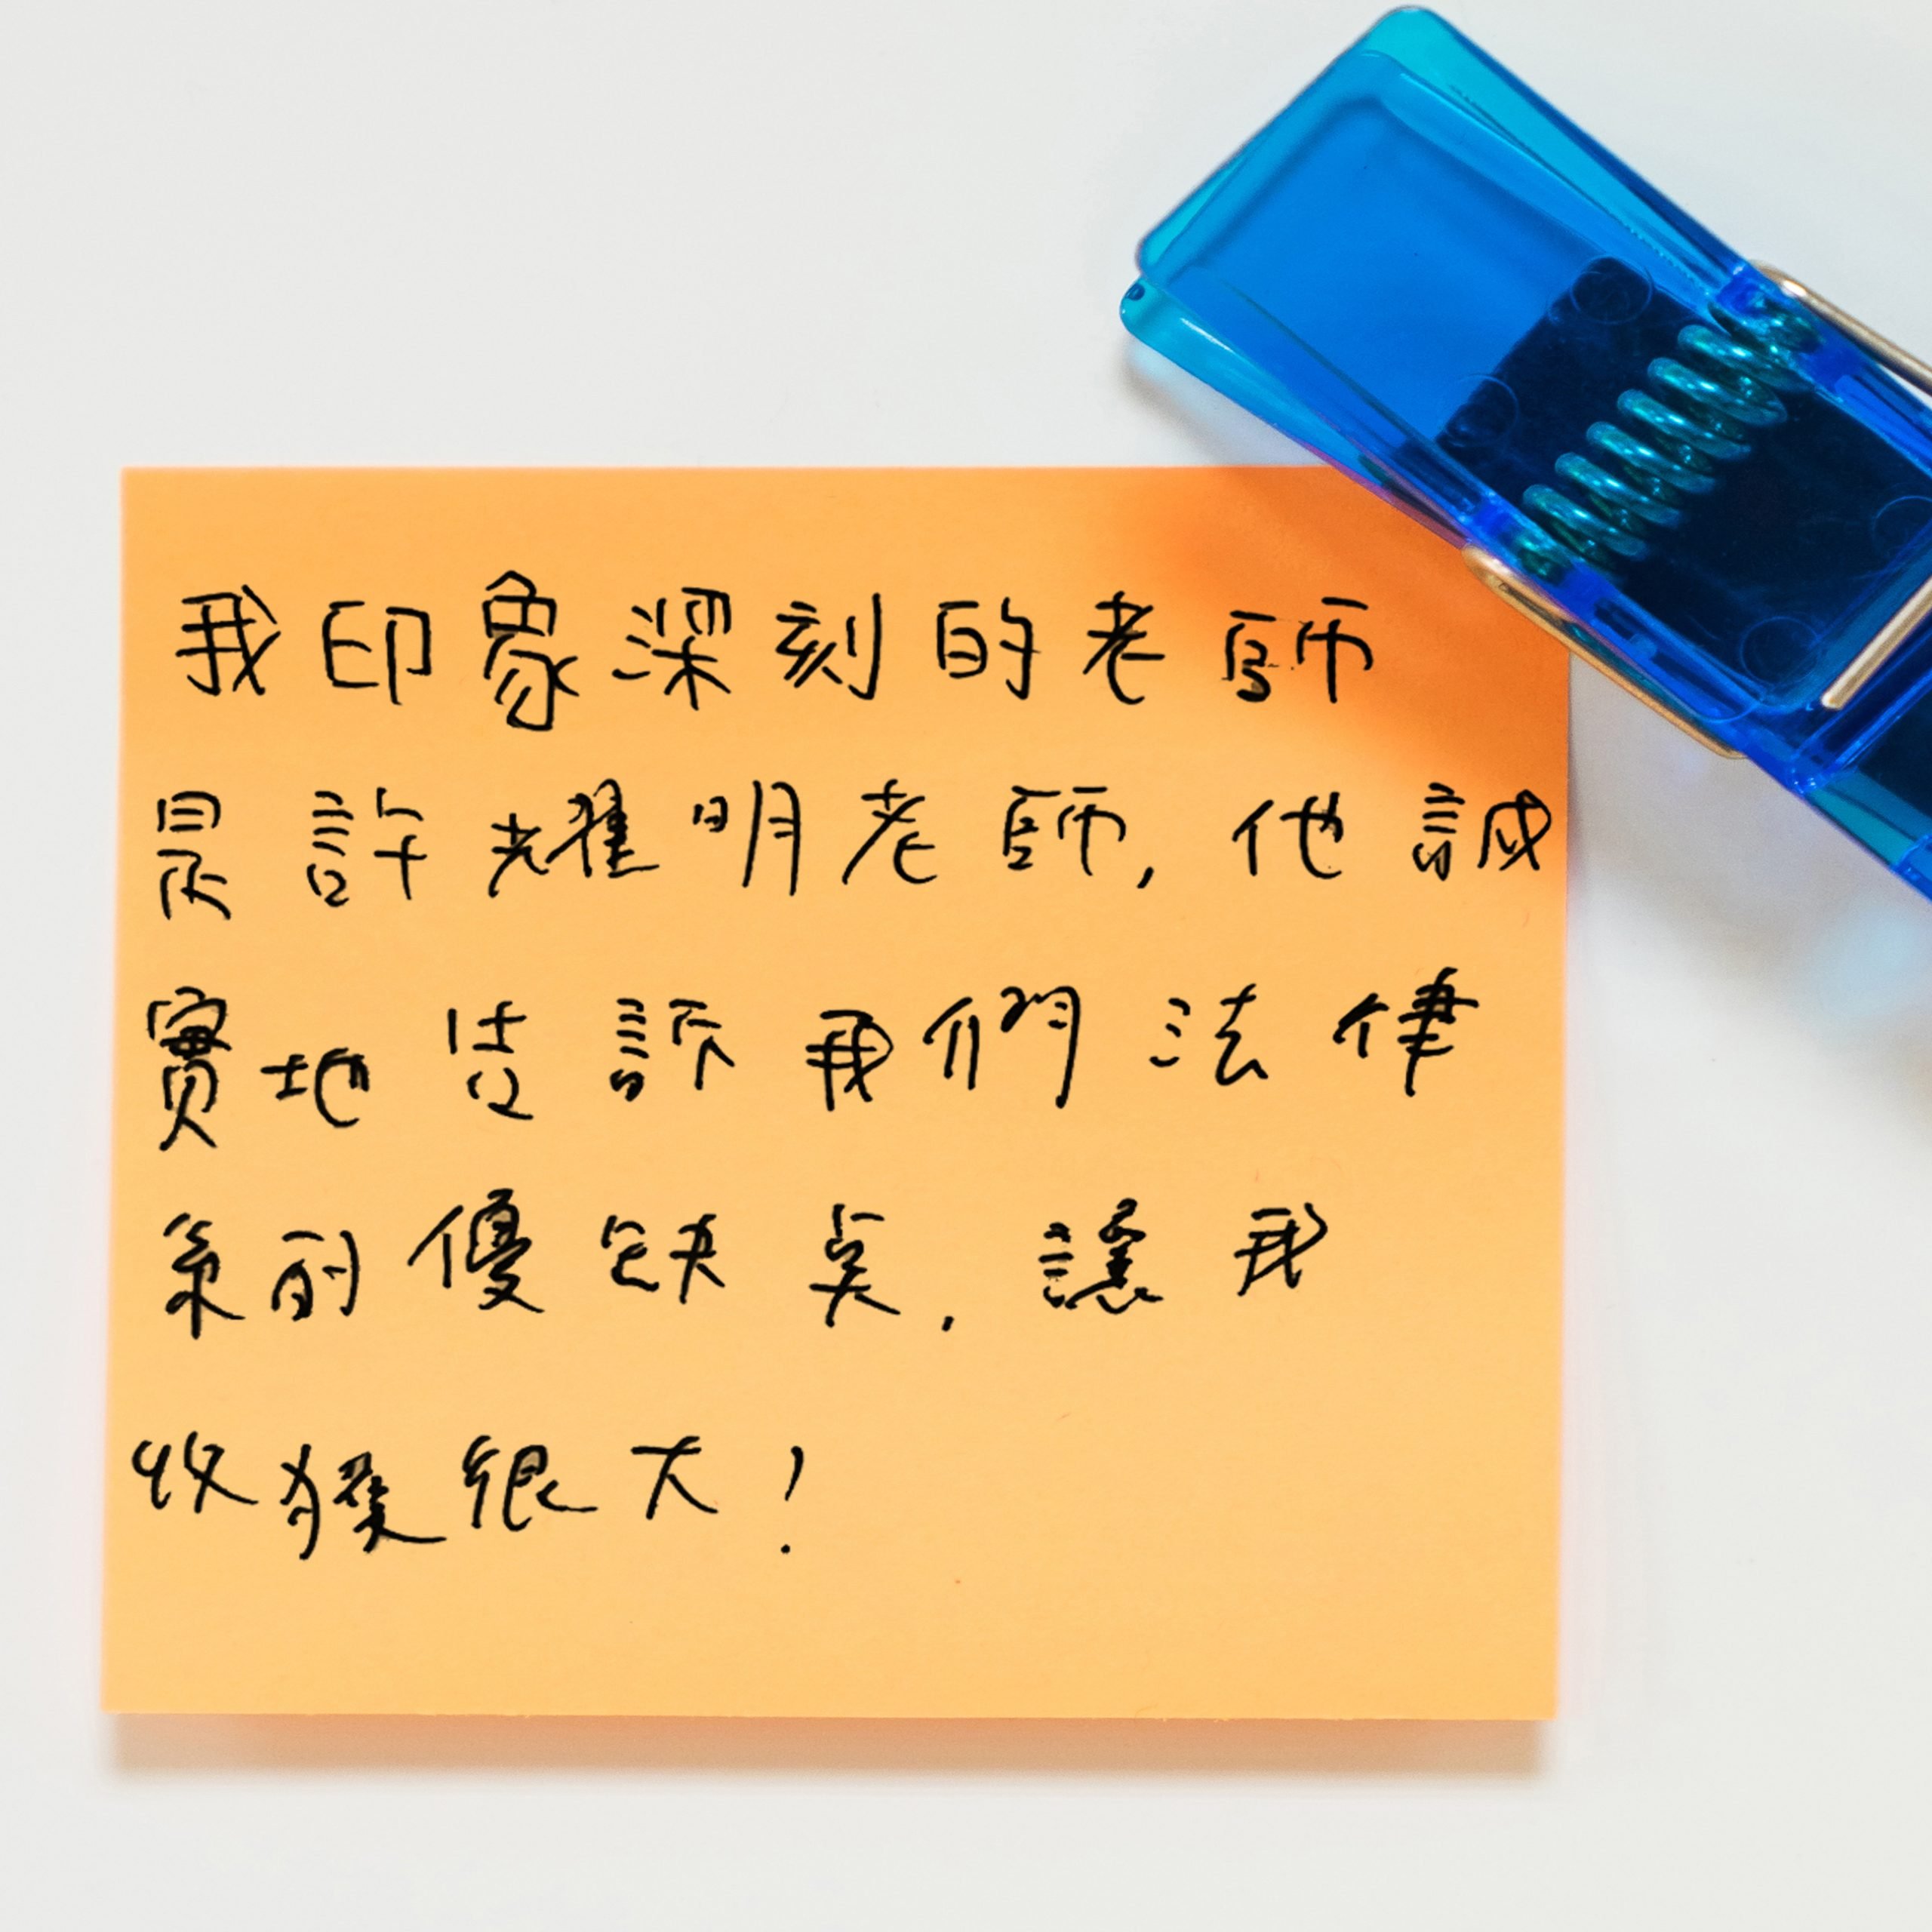 我印象深刻的老師
是許耀明老師,他誠
實地告訴我們法律
系的優缺點,讓我
收穫很大!